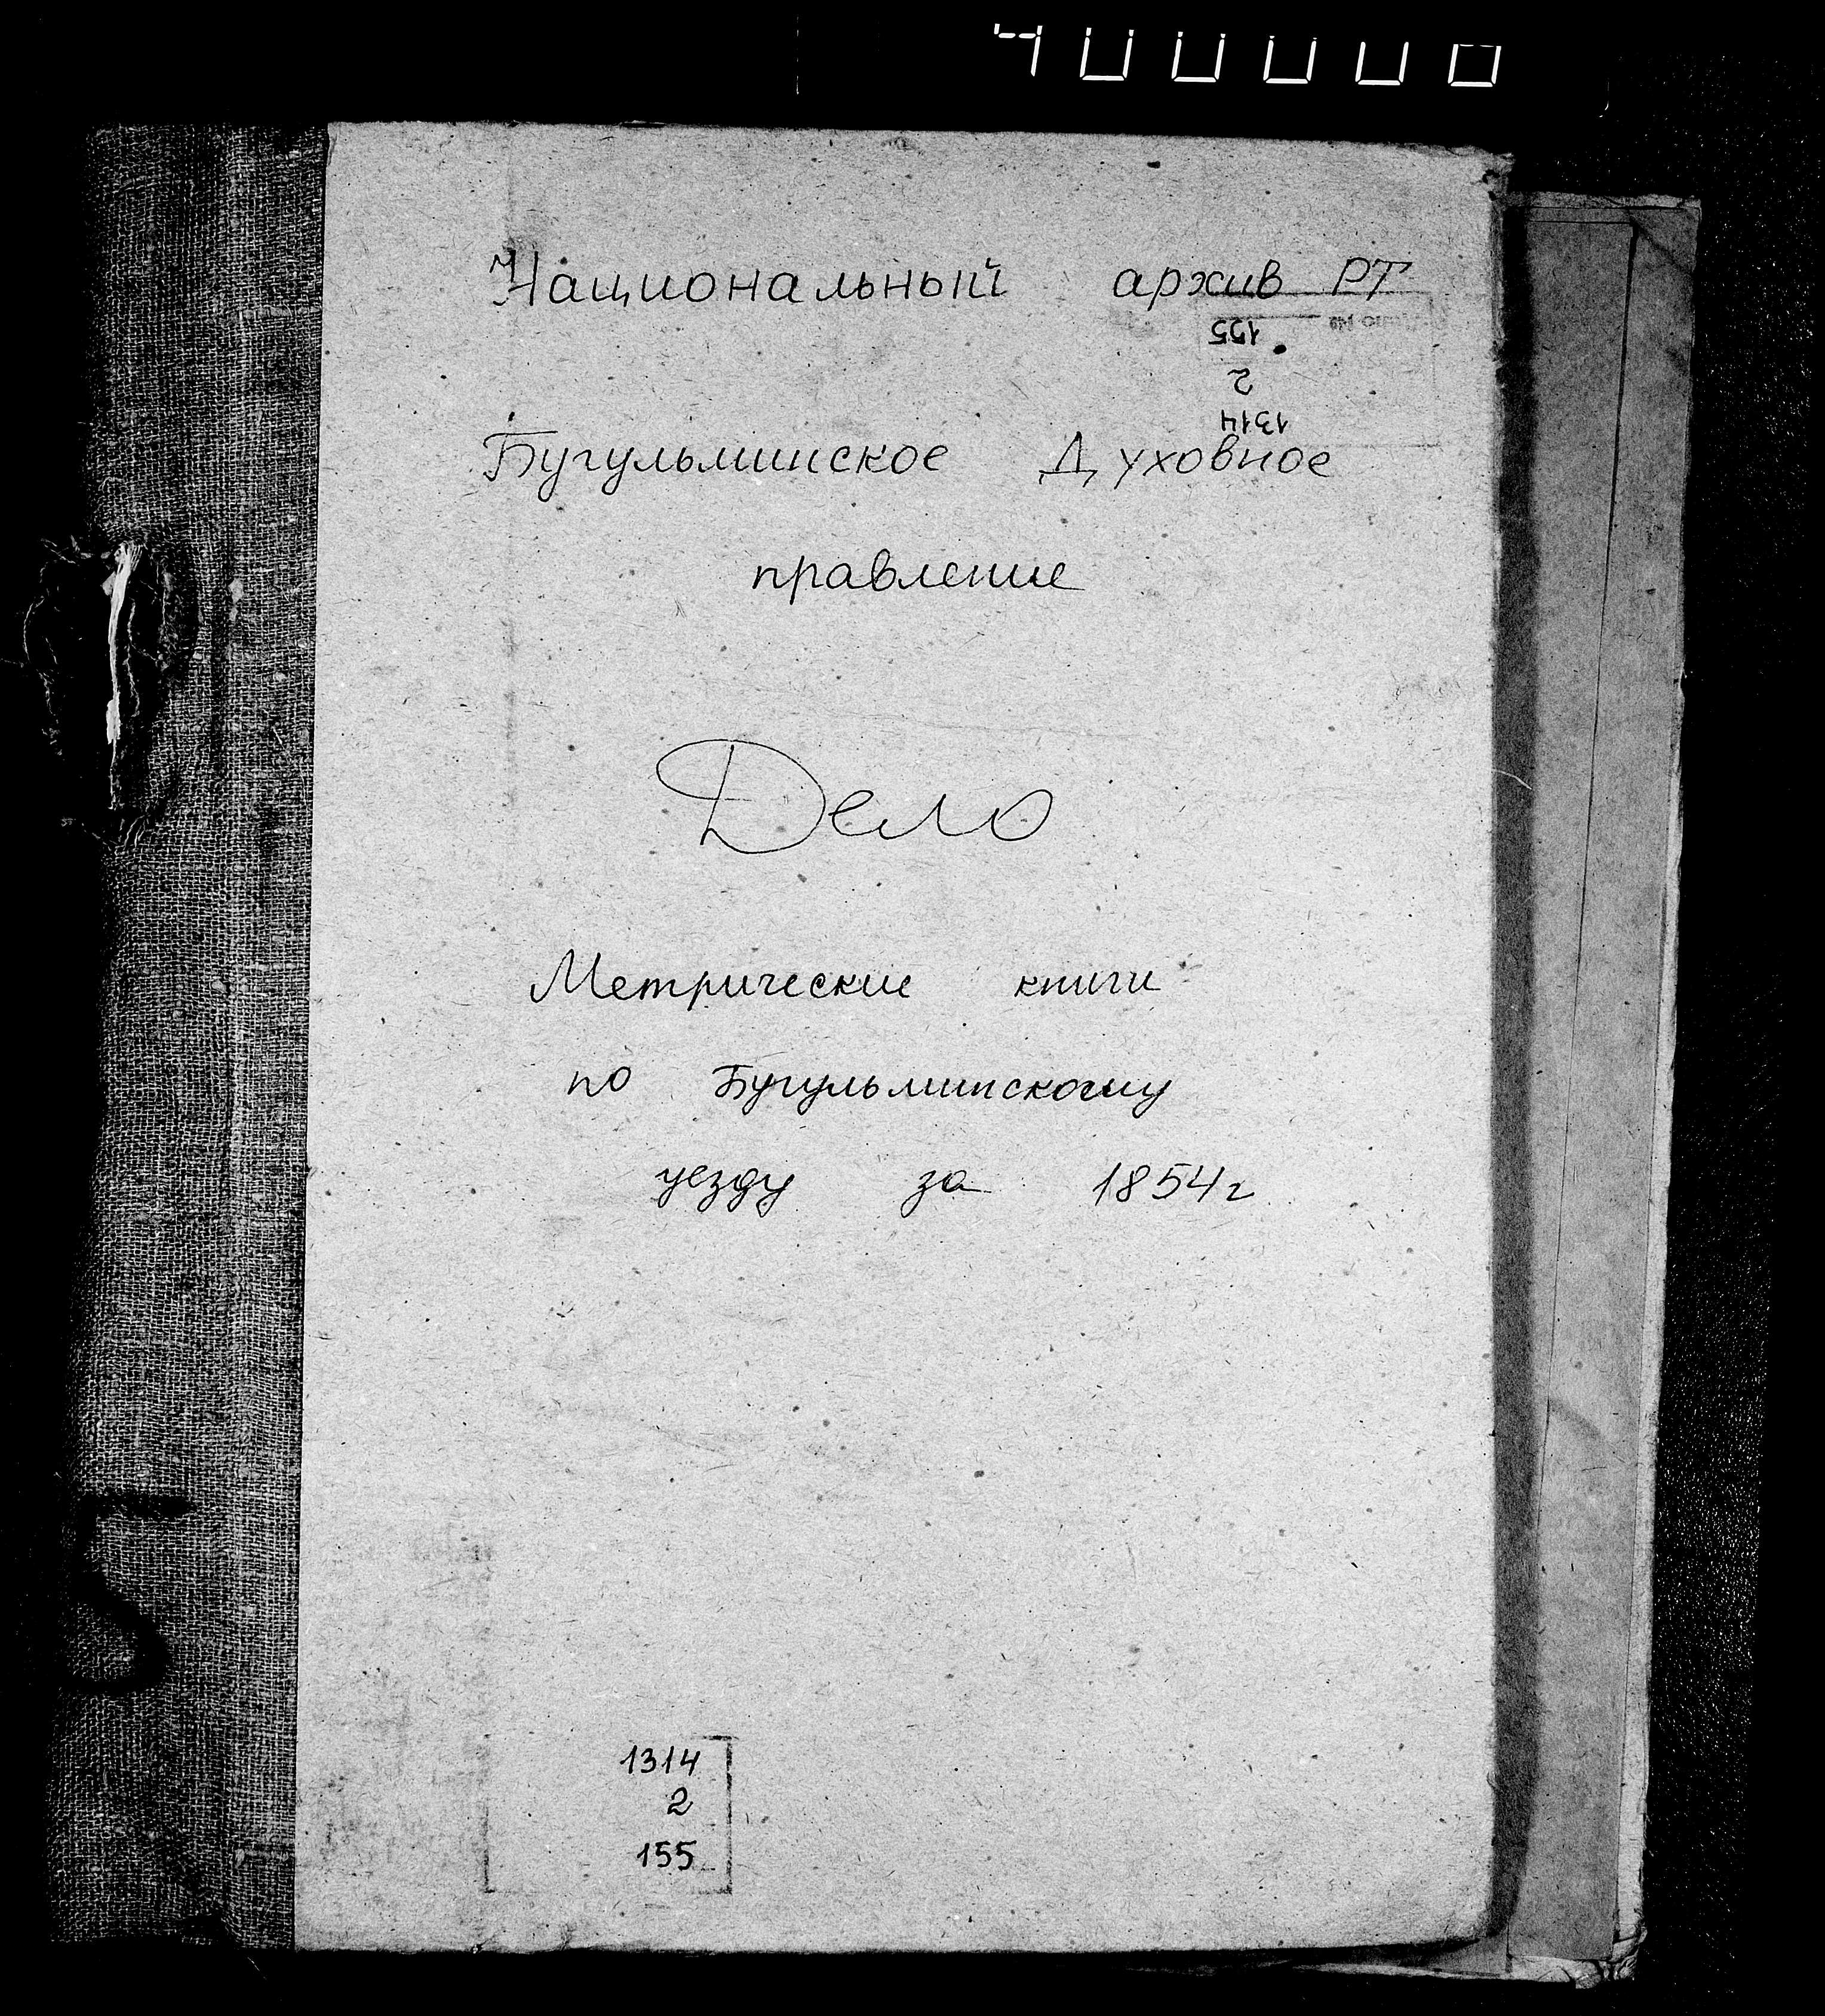 Национальный архив РТ
155
2
1314
Бугульминское Духовное
правление
Дело
Метрические книги
по Бугульминскому
уезду за 1854г
1314
2
155